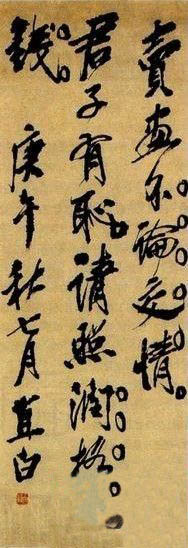 賣畫不論交情。
君子有恥。請照潤格。
錢。庚午秋七月直白